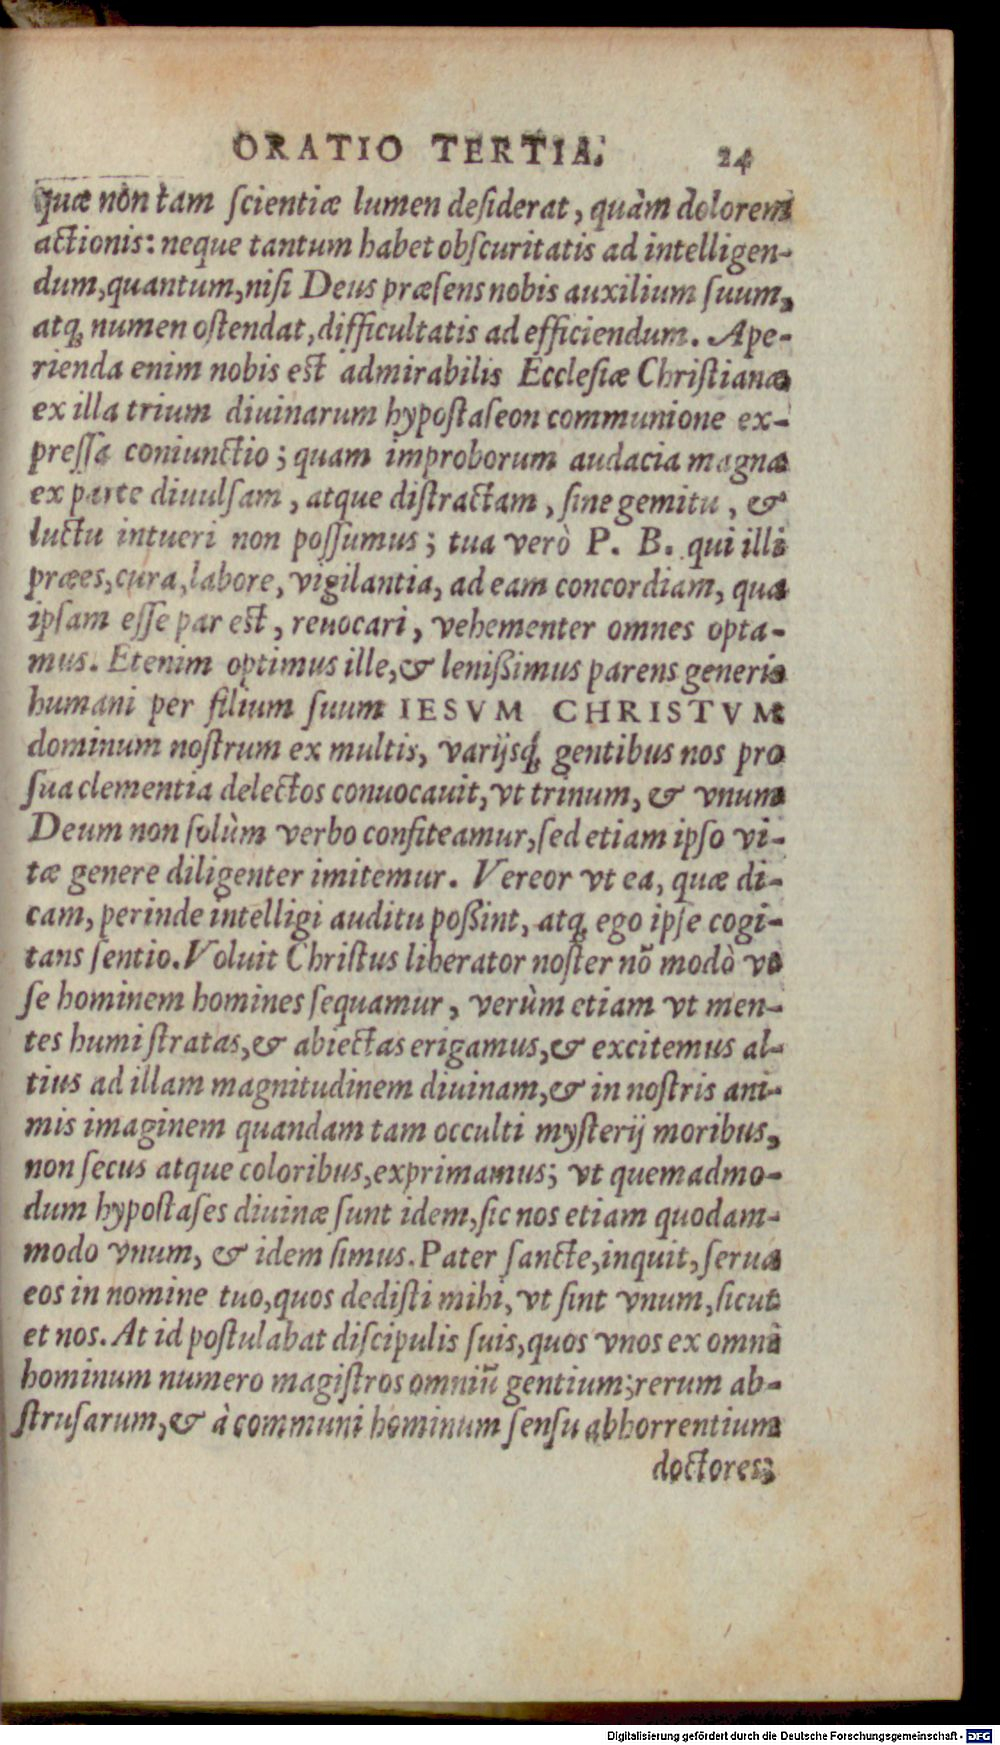 ORATIO TERTIA. 24
quæ non tam ſcientiæ lumen deſiderat, quàm dolorem
actionis: neque tantum habet obſcuritatis ad intelligen-
dum, quantum, niſi Deus præſens nobis auxilium ſuum,
atq; numen oſtendat, difficultatis ad efficiendum. Ape-
rienda enim nobis est admirabilis Eccleſiæ Chriſtianæ
ex illa trium diuinarum hypoſtaſeon communione ex-
preſſa coniunctio; quam improborum audacia magna
ex parte diuulſam, atque diſtractam, ſine gemitu, &
luctu intueri non poſſumus; tua verò P. B. qui illi
præes, cura, labore, vigilantia, ad eam concordiam, qua
ipſam eſſe par est, reuocari, vehementer omnes opta-
mus. Etenim optimus ille, & lenißimus parens generis
humani per filium ſuum IESVM CHRISTVM
dominum noſtrum ex multis, varijsq́; gentibus nos pro
ſua clementia delectos conuocauit, vt trinum, & vnum
Deum non ſolùm verbo confiteamur, ſed etiam ipſo vi-
tæ genere diligenter imitemur. Vereor vt ea, quæ di-
cam, perinde intelligi auditu poßint, atq; ego ipſe cogi-
tans ſentio. Voluit Chriſtus liberator noſter nō modò vt
ſe hominem homines ſequamur, verùm etiam vt men-
tes humi ſtratas, & abiectas erigamus, & excitemus al-
tius ad illam magnitudinem diuinam, & in noſtris ani-
mis imaginem quandam tam occulti myſterij moribus,
non ſecus atque coloribus, exprimamus; vt quemadmo-
dum hypoſtaſes diuinæ ſunt idem, ſic nos etiam quodam-
modo vnum, & idem ſimus. Pater ſancte, inquit, ſerua
eos in nomine tuo, quos dediſti mihi, vt ſint vnum, ſicut
et nos. At id poſtulabat diſcipulis ſuis, quos vnos ex omni
hominum numero magiſtros omniū gentium; rerum ab-
ſtruſarum, & à communi hominum ſenſu abhorrentium
doctores;
Digitalisierung gefördert durch die Deutsche Forschungsgemeinschaft - DFG